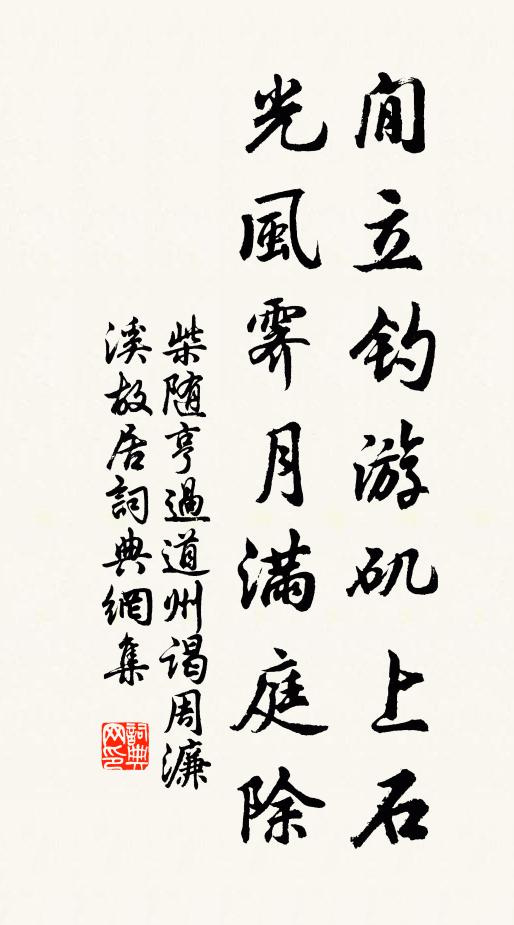 閒立釣游矶上石
光風霽月滿庭除
柴随亨過道州謁周濂
溪故居詞典網集
詞典网印